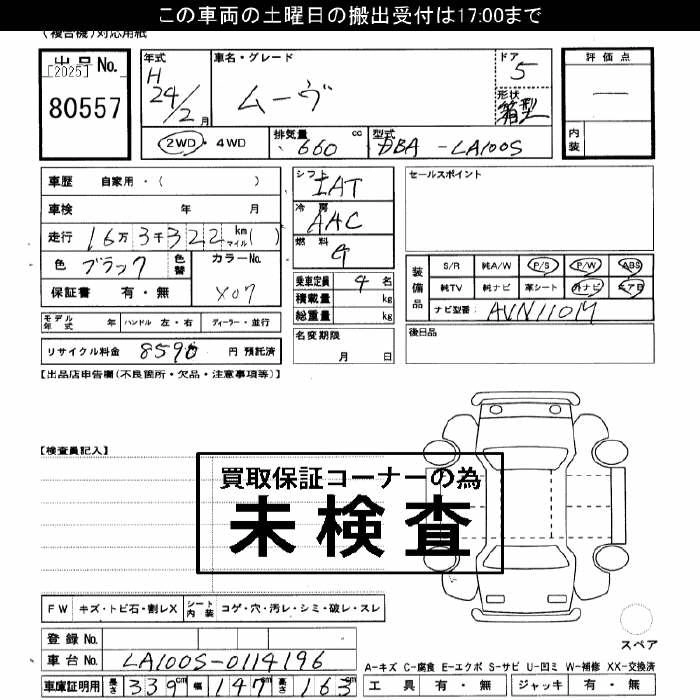 この車両の土曜日の搬出受付は17:00まで
(複合機)対応用紙
出品No. [2025] 80557
年式 H 24/2月
車名・グレード ムーヴ
ドア 5
形状 箱型
評価点 —
内装
2WD・4WD
排気量 660 cc
型式 DBA-LA100S
車歴 自家用・( )
車検 年 月
走行 16万3千322 km マイル( )
色 ブラック 色替
カラーNo. X07
保証書 有・無
シフト IAT
冷房 AAC
燃料 G
乗車定員 4名
積載量 kg
総重量 kg
セールスポイント
装備品 S/R 純A/W P/S P/W ABS
純TV 純ナビ 革シート 外ナビ エアB
ナビ型番: AVN110M
モデル年式 年 ハンドル 左・右 ディーラー・並行
リサイクル料金 8590 円 預託済
名変期限 月 日
後日品
【出品店申告欄(不良箇所・欠品・注意事項等)】
【検査員記入】
買取保証コーナーの為
未検査
FW キズ・トビ石・割レX シート内装 コゲ・穴・汚レ・シミ・破レ・スレ
登録No.
車台No. LA100S-0114196
車庫証明用 長さ 339cm 幅 147cm 高さ 163cm
スペア
A-キズ C-腐食 E-エクボ S-サビ U-凹ミ W-補修 XX-交換済
工具 有・無 ジャッキ 有・無